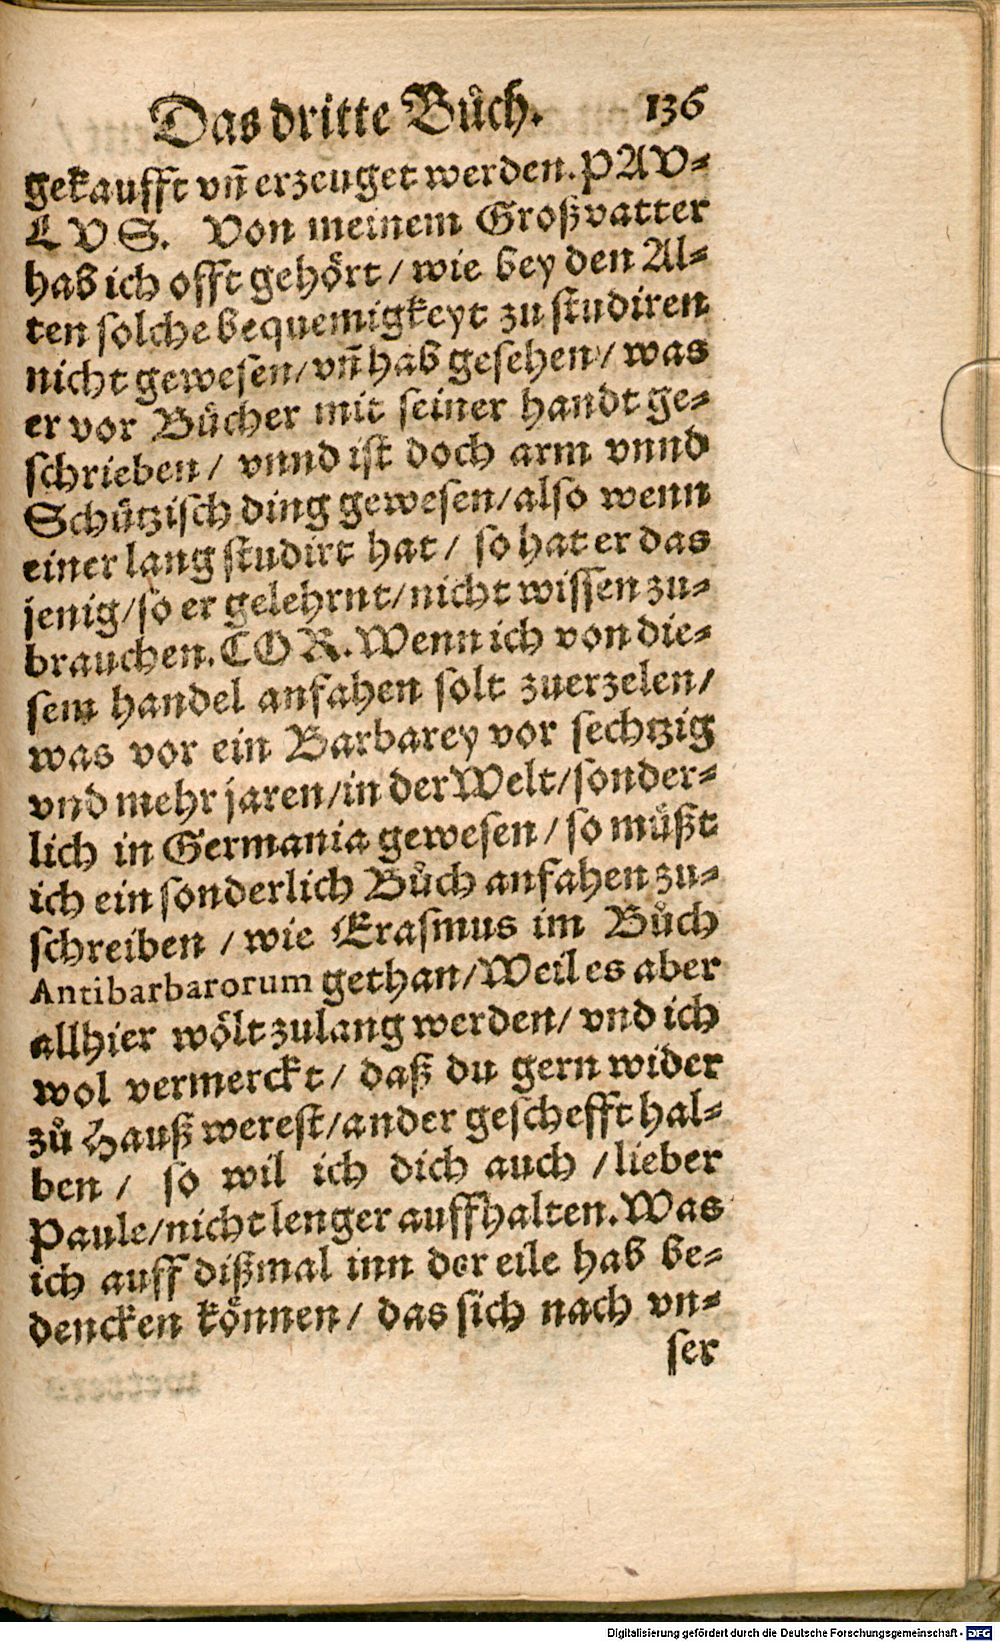 Das dritte Bůch. 136
gekaufft vñ erzeuget werden. PAV⸗
LVS. Von meinem Großvatter
hab ich offt gehört / wie bey den Al⸗
ten solche bequemigkeyt zu studiren
nicht gewesen / vñ hab gesehen / was
er vor Bücher mit seiner handt ge⸗
schrieben / vnnd ist doch arm vnnd
Schützisch ding gewesen / also wenn
einer lang studirt hat / so hat er das
jenig / so er gelehrnt / nicht wissen zu⸗
brauchen. COR. Wenn ich von die⸗
sem handel anfahen solt zuerzelen /
was vor ein Barbarey vor sechtzig
vnd mehr jaren / in der Welt / sonder⸗
lich in Germania gewesen / so müßt
ich ein sonderlich Bůch anfahen zu⸗
schreiben / wie Erasmus im Bůch
Antibarbarorum gethan / Weil es aber
allhier wölt zulang werden / vnd ich
wol vermerckt / daß du gern wider
zů Hauß werest / ander geschefft hal⸗
ben / so wil ich dich auch / lieber
Paule / nicht lenger auffhalten. Was
ich auff dißmal inn der eile hab be⸗
dencken können / das sich nach vn⸗
ser
Digitalisierung gefördert durch die Deutsche Forschungsgemeinschaft - DFG